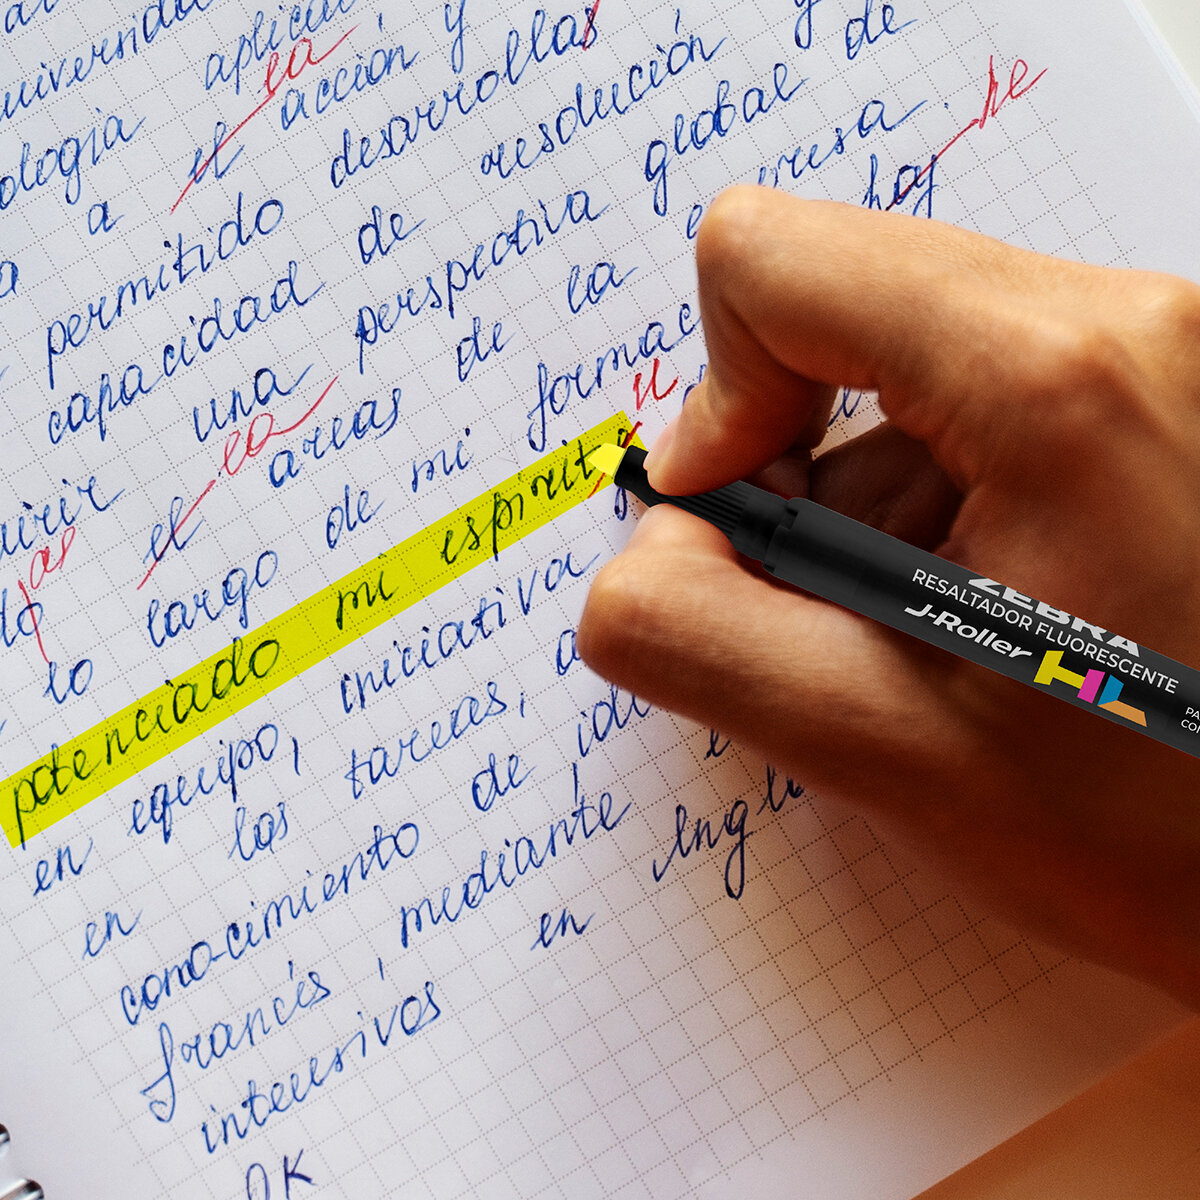 universida
ología aplicad
a a el acción y
la
permitido desarrollas
capacidad de resolución y
una perspectiva global de
el areas de la
la
as
lo largo de mi formac hoy
he
potenciado mi espirit
u
en equipo, iniciativa
en los tareas,
conocimiento de
francés, mediante
intensivos en Ingl
OK
ZEBRA
RESALTADOR FLUORESCENTE
J-Roller
HL